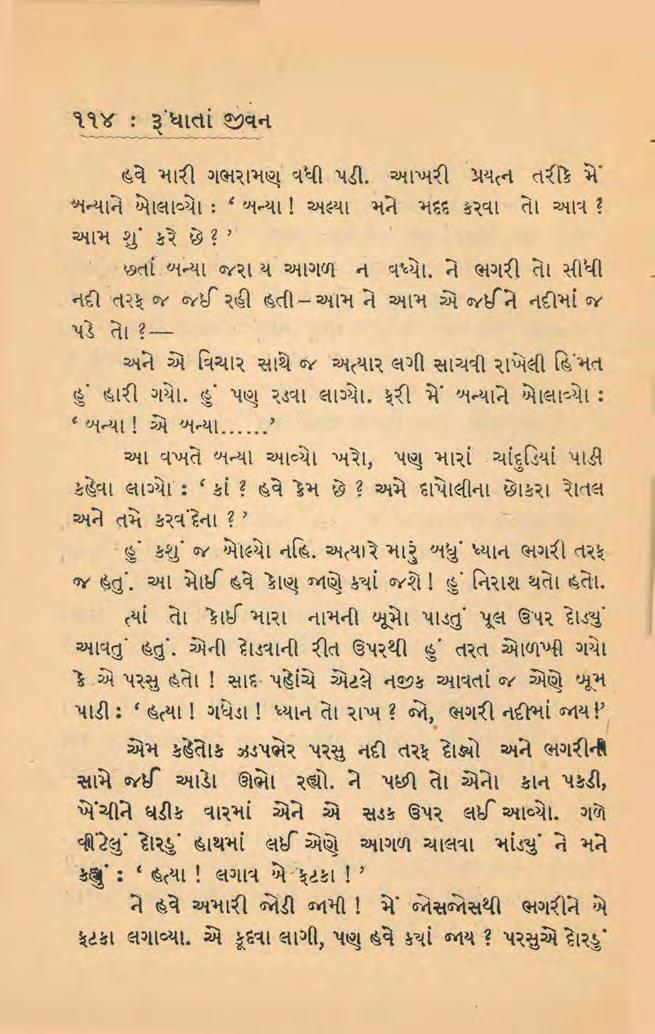 ૧૧૪ : રૂંધાતાં જીવન
હવે મારી ગભરામણ વધી પડી. આખરી પ્રયત્ન તરીકે મેં
બન્યાને બોલાવ્યો : ‘ બન્યા ! અલ્યા મને મદદ કરવા તો આવ ?
આમ શું કરે છે ? ’
છતાં બન્યા જરા ય આગળ ન વધ્યો. ને ભગરી તો સીધી
નદી તરફ જ જઈ રહી હતી – આમ ને આમ એ જઈને નદીમાં જ
પડે તો ? —
અને એ વિચાર સાથે જ અત્યાર લગી સાચવી રાખેલી હિંમત
હું હારી ગયો. હું પણ રડવા લાગ્યો. ફરી મેં બન્યાને બોલાવ્યો :
‘ બન્યા ! એ બન્યા...... ’
આ વખતે બન્યા આવ્યો ખરો, પણ મારાં ચાંદુડિયાં પાડી
કહેવા લાગ્યો : ‘ કાં ? હવે કેમ છે ? અમે દાપોલીના છોકરા રોતલ
અને તમે કરવંદેના ? ’
હું કશું જ બોલ્યો નહિ. અત્યારે મારું બધું ધ્યાન ભગરી તરફ
જ હતું. આ મોઈ હવે કોણ જાણે ક્યાં જશે ! હું નિરાશ થતો હતો.
ત્યાં તો કોઈ મારા નામની બૂમો પાડતું પૂલ ઉપર દોડ્યું
આવતું હતું. એની દોડવાની રીત ઉપરથી હું તરત ઓળખી ગયો
કે એ પરસુ હતો ! સાદ પહોંચે એટલે નજીક આવતાં જ એણે બૂમ
પાડી : ‘ હત્યા ! ગધેડા ! ધ્યાન તો રાખ ? જો, ભગરી નદીમાં જાય !’
એમ કહેતોક ઝડપભેર પરસુ નદી તરફ દોડ્યો અને ભગરીની
સામે જઈ આડો ઊભો રહ્યો. ને પછી તો એનો કાન પકડી,
ખેંચીને ઘડીક વારમાં એને એ સડક ઉપર લઈ આવ્યો. ગળે
વીંટેલું દોરડું હાથમાં લઈ એણે આગળ ચાલવા માંડ્યું ને મને
કહ્યું : ‘ હત્યા ! લગાવ બે ફટકા ! ’
ને હવે અમારી જોડી જામી ! મેં જોસજોસથી ભગરીને બે
ફટકા લગાવ્યા. એ કૂદવા લાગી, પણ હવે ક્યાં જાય ? પરસુએ દોરડું